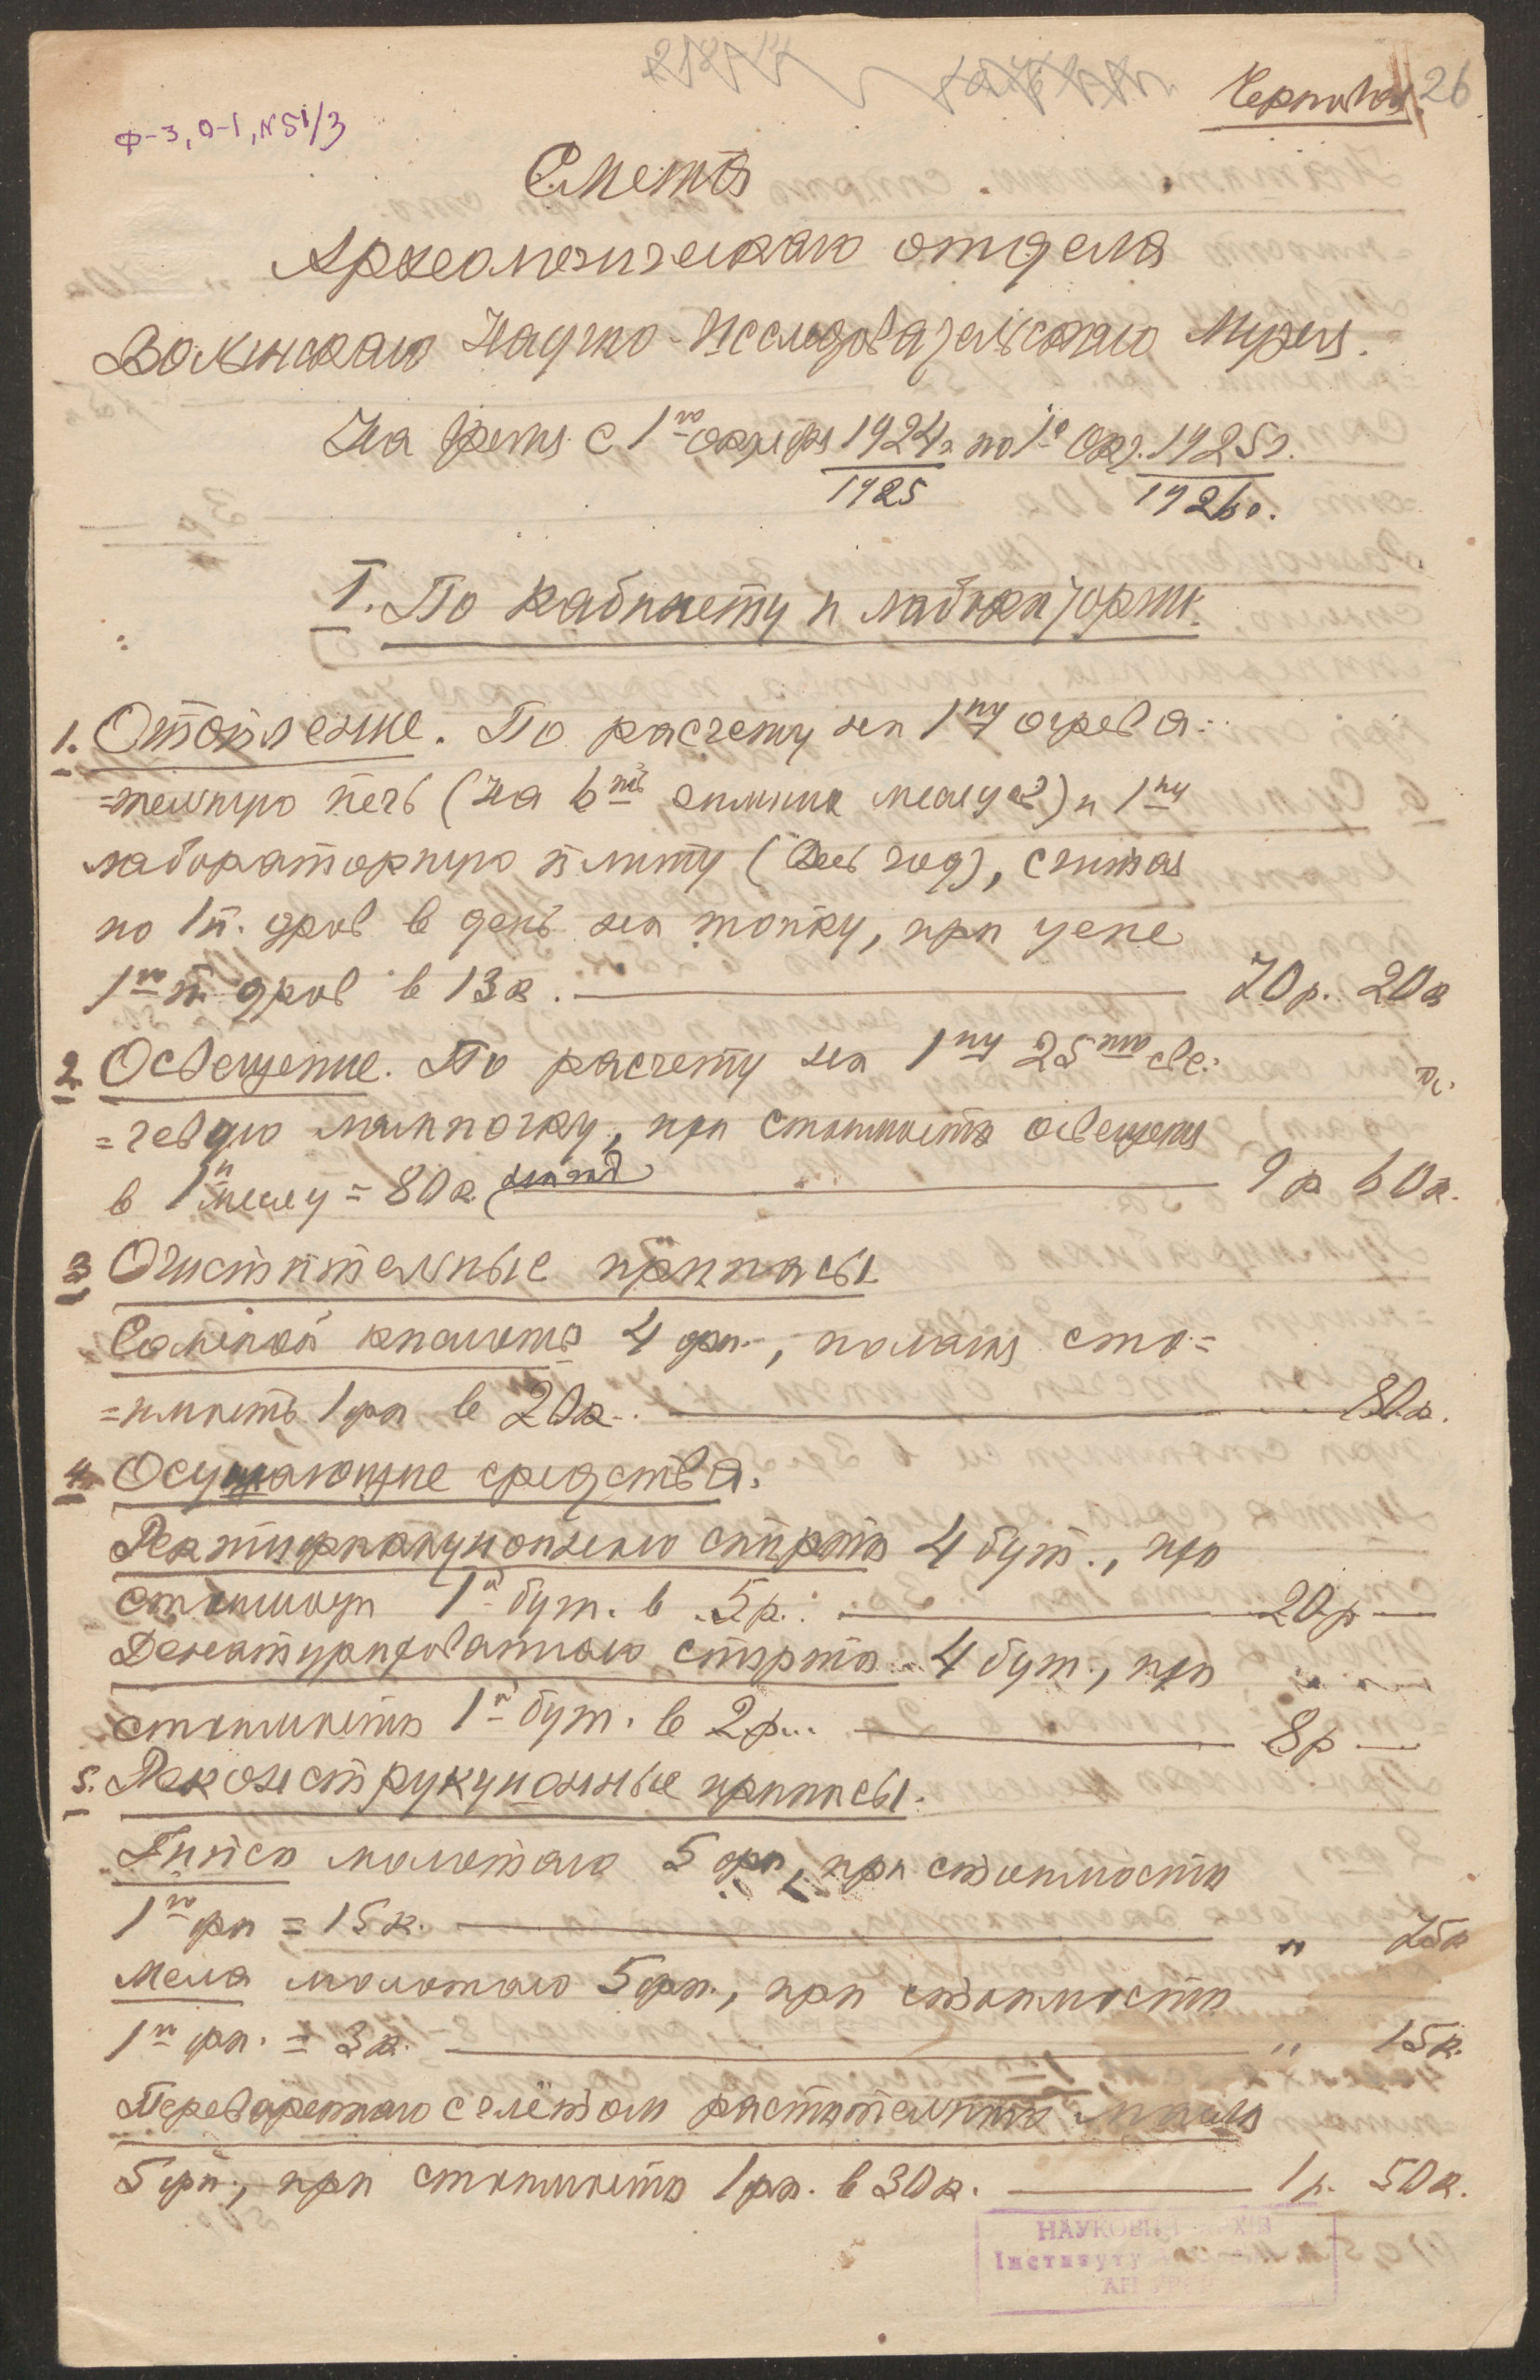 Черновая. 26
Ф-3, О-1, №51/3
Смета
Археологическаго отдела
Волынскаго Научно-Исследовательскаго Музея.
На время с 1го октября 1924г. по 1е Окт. 1925г.
1925 1926г.
I. По кабинету и лаборатории.
1. Отопление. По расчету на 1ну огрева-
=тельную печь (на 6ть зимних месяцев) и 1ну
лабораторную плиту (весь год), считая
по 1п. дров в день на топку, при цене
1го п. дров в 13к. 70р. 20к
2. Освещение. По расчету на 1ну 25ти све-
=чевую лампочку, при стоимости освещения
в 1н месяц = 80к. 9р 60к.
3 Очистительные припасы
Соляной кислоты 4 фн., полагая сто=
=имость 1фн в 20к. 80к.
4. Осушающие средства.
Ректификационного спирта 4 бут., при
стоимости 1й бут. в 5р. 20р
Денатурированнаго спирта 4 бут., при
стоимости 1й бут. в 2р. 8р
5. Реконструкционные припасы.
Гипса молотаго 5 фн, при стоимости
1го фн = 15к. " 75к
Мела молотаго 5фн., при стоимости
1го фн. = 3к. " 15к.
Переваренного с растительнаго масла
5фн., при стоимости 1фн. в 30к. 1р. 50к.
НАУКОВИЙ АРХІВ
Інституту
АН